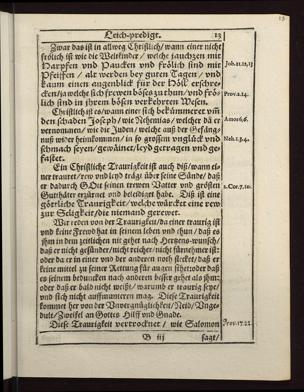 Leich-predigt. 13
Zwar das ist in allweg Christlich/ wann einer nicht
frölich ist wie die Weltkinder/ welche jauchzen mit
Harpffen vnd Paucken vnd frölich sind mit
Pfeiffen/ alt werden bey guten Tagen/ vnd
kaum einen augenblick für der Höll erschre-
cken/ ja welche sich frewen böses zuthun/ vnd frö-
lich sind in jhrem bösen verkehrten Wesen.
Job.21.12,13
Prov.2.14.
Christlich ist es/ wann einer sich bekümmert vm
den schaden Joseph/ wie Nehemias/ welcher da er
vernommen/ wie die Juden/ welche auß der Gefäng-
nuß wider heimkommen/ in so grossem vnglück vnd
schmach seyen/ gewäinet/ leyd getragen vnd ge-
fastet.
Amos 6,6.
Neh.1.3,4.
Ein Christliche Traurigkeit ist auch diß/ wann ei-
ner trauret/ rew vnd leyd trägt über seine Sünde/ daß
er dadurch GOtt seinen trewen Vatter vnd grösten
Gutthäter erzürnet vnd beleidiget habe. Diß ist eine
görtliche Traurigkeit/ welche würcket eine rew
zur Seligkeit/ die niemand gerewet.
2.Cor.7.10.
Wir reden von der Traurigkeit/ da einer traurig ist
vnd keine Frewd hat in seinem leben vnd thun/ daß es
jhm in dem zeitlichen nit gehet nach Hertzens-wunsch/
daß er nicht gesünder/ nicht reicher/ nicht fürnehmer ist:
oder da er in einer vnd der anderen noth stecket/ daß er
keine mittel zu seiner Rettung für augen sihet: oder daß
es seinem beduncken nach anderen besser gehet als jhm:
oder daß er bald nicht weißt/ warumb er traurig seye/
vnd sich nicht auffmunteren mag. Diese Traurigkeit
kommet her von der Vnvergnüglichkeit/ Neid/ Vnge-
dult/ Zweifel an Gottes Hilff vnd Gnade.
Diese Traurigkeit vertrocknet/ wie Salomon
Prov.17.22.
B iij sagt/